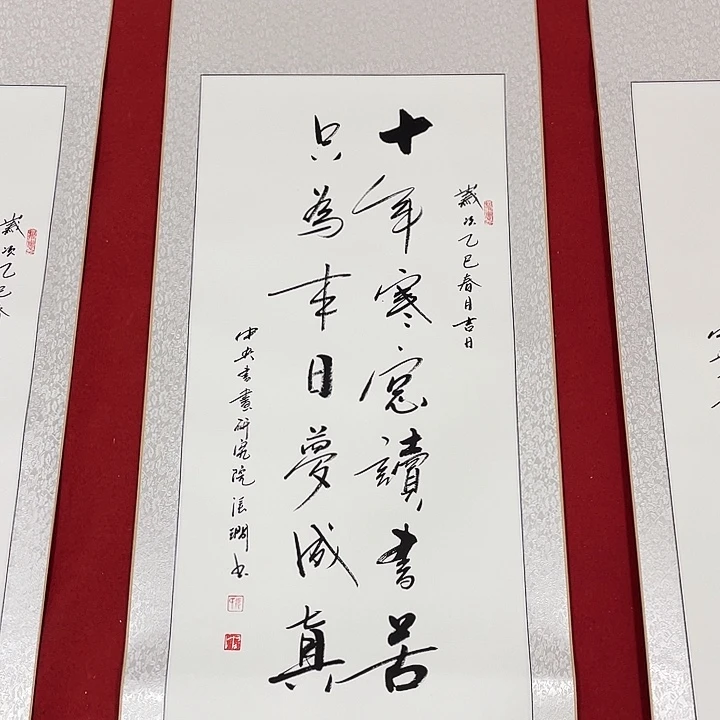 歲次乙巳春月吉日
十年寒窓讀書苦
只為来日夢成真
中央書畫研究院
書
歲次乙巳春